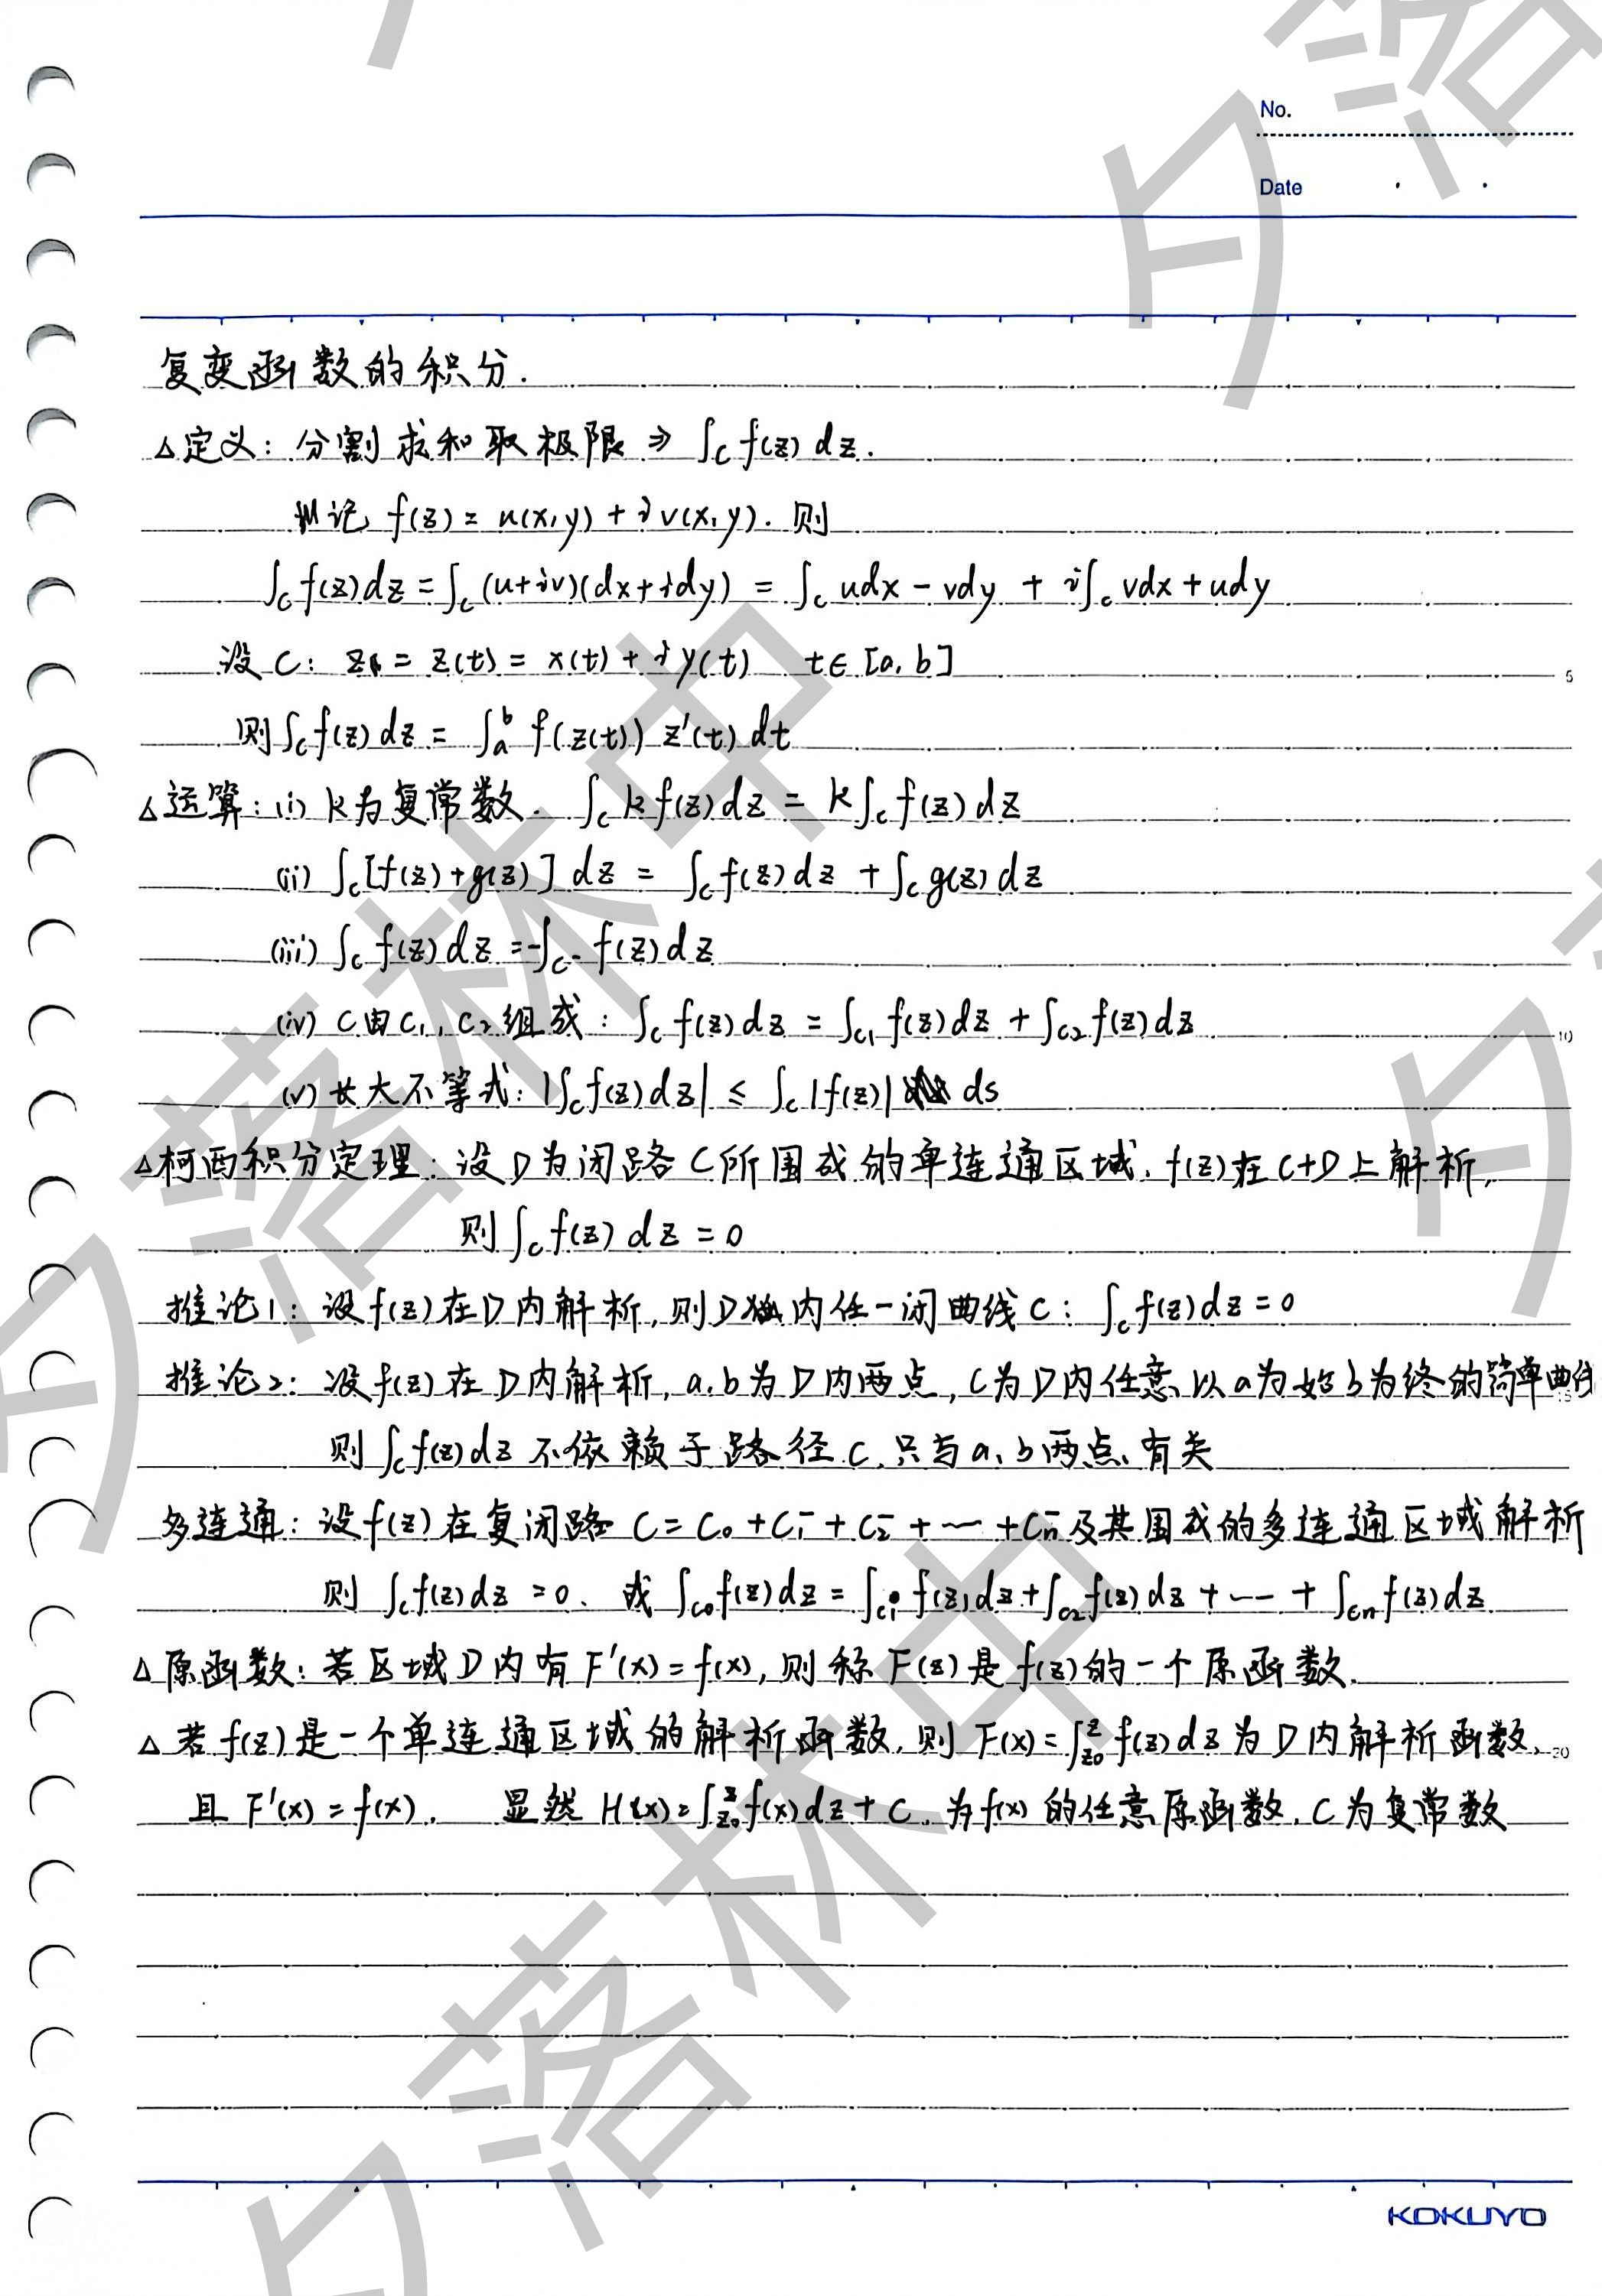 No.
Date
复变函数的积分.
△定义: 分割求和取极限 ⇒ ∫_C f(z) dz.
记 f(z) = u(x,y) + i v(x,y). 则
∫_C f(z)dz = ∫_C (u+iv)(dx+idy) = ∫_C udx - vdy + i∫_C vdx + udy
设 C: z = z(t) = x(t) + i y(t) t∈[a,b]
则 ∫_C f(z) dz = ∫_a^b f(z(t)) z'(t) dt
△运算: (i) k为复常数. ∫_C k f(z) dz = k∫_C f(z) dz
(ii) ∫_C [f(z)+g(z)] dz = ∫_C f(z) dz + ∫_C g(z) dz
(iii) ∫_C f(z) dz = -∫_C⁻ f(z) dz
(iv) C由C₁, C₂组成: ∫_C f(z) dz = ∫_C₁ f(z) dz + ∫_C₂ f(z) dz
(v) 长大不等式: |∫_C f(z) dz| ≤ ∫_C |f(z)| ds
△柯西积分定理: 设D为闭路C所围成的单连通区域, f(z)在C+D上解析,
则 ∫_C f(z) dz = 0
推论1: 设f(z)在D内解析, 则D内任一闭曲线C: ∫_C f(z) dz = 0
推论2: 设f(z)在D内解析, a,b为D内两点, C为D内任意以a为始b为终的简单曲线
则 ∫_C f(z) dz 不依赖于路径C, 只与a,b两点有关
多连通: 设f(z)在复闭路 C = C₀ + C₁⁻ + C₂⁻ + ⋯ + Cn⁻ 及其围成的多连通区域解析
则 ∫_C f(z) dz = 0. 或 ∫_C₀ f(z) dz = ∫_C₁ f(z) dz + ∫_C₂ f(z) dz + ⋯ + ∫_Cn f(z) dz
△原函数: 若区域D内有F'(x) = f(x), 则称F(z)是f(z)的一个原函数.
△若f(z)是一个单连通区域的解析函数, 则 F(x) = ∫_z₀^z f(z) dz 为D内解析函数,
且 F'(x) = f(x). 显然 H(x) = ∫_z₀^z f(x) dz + C, 为f(x)的任意原函数, C为复常数
5
10
15
20
KOKUYO
夕落林中
夕落林中
夕落
夕